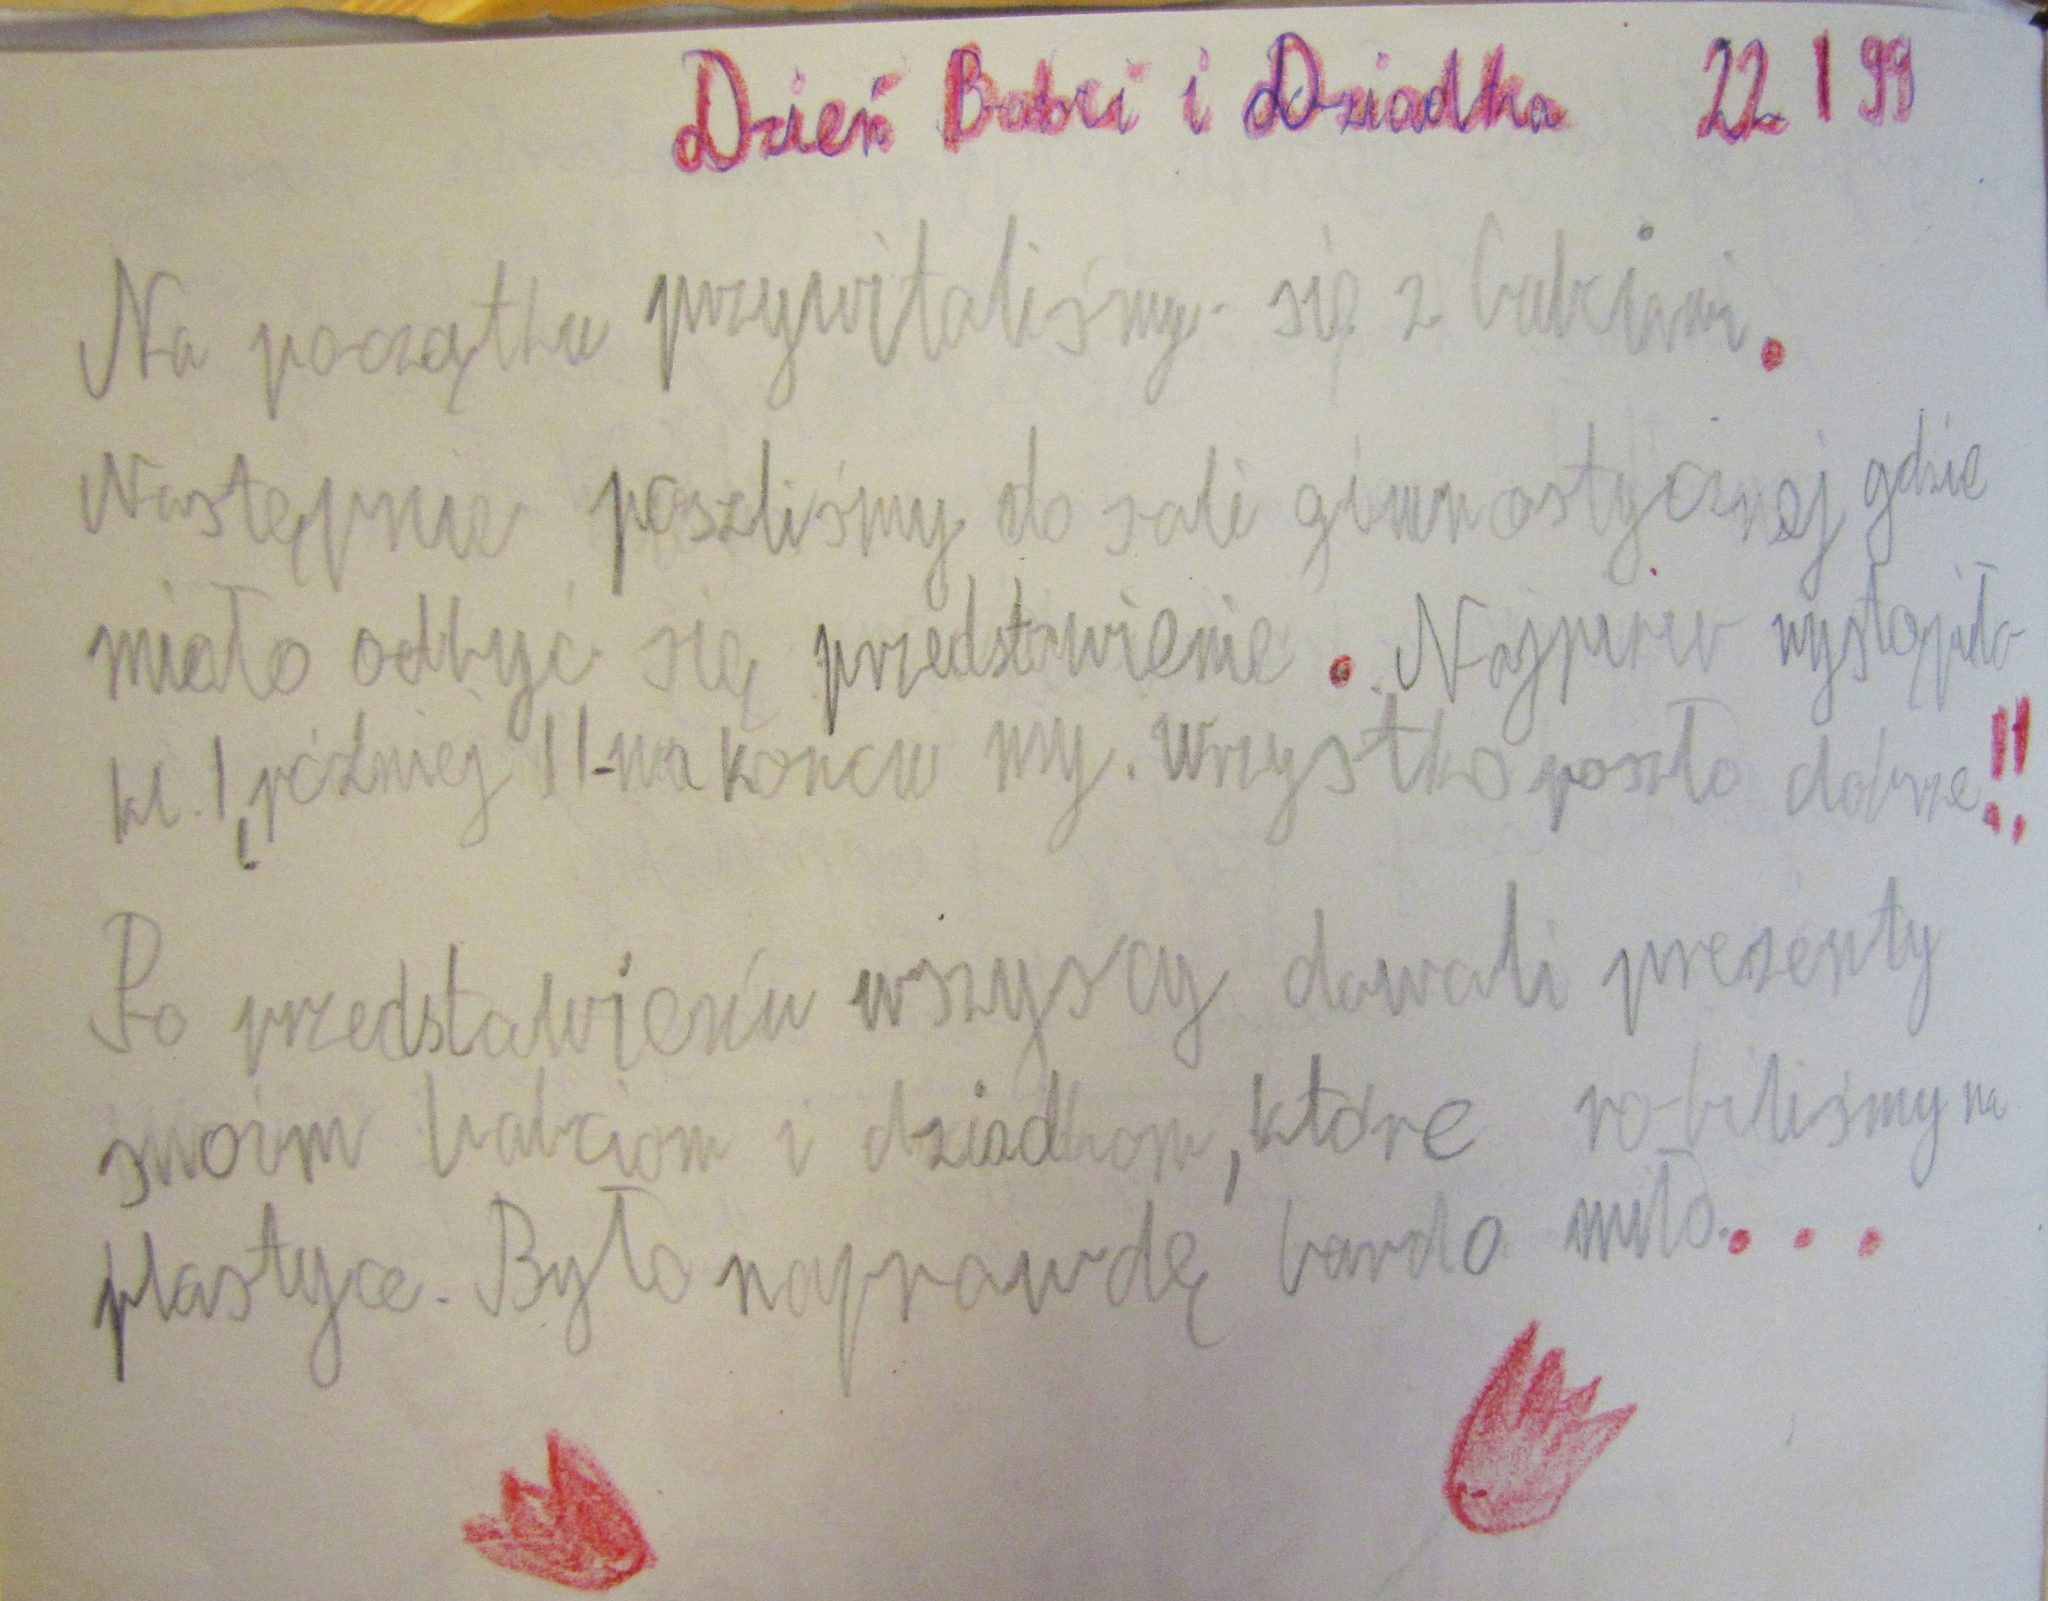 Dzień Babci i Dziadka 22 I 99
Na początku przywitaliśmy się z babciami.
Następnie poszliśmy do sali gimnastycznej gdzie
miało odbyć się przedstawienie. Najpierw wystąpiła
kl. I, później II-na koncu my. Wszystko poszło dobrze!!
Po przedstawieniu wszyscy dawali prezenty
swoim babciom i dziadkom, które robiliśmy na
plastyce. Było naprawdę bardo miło...